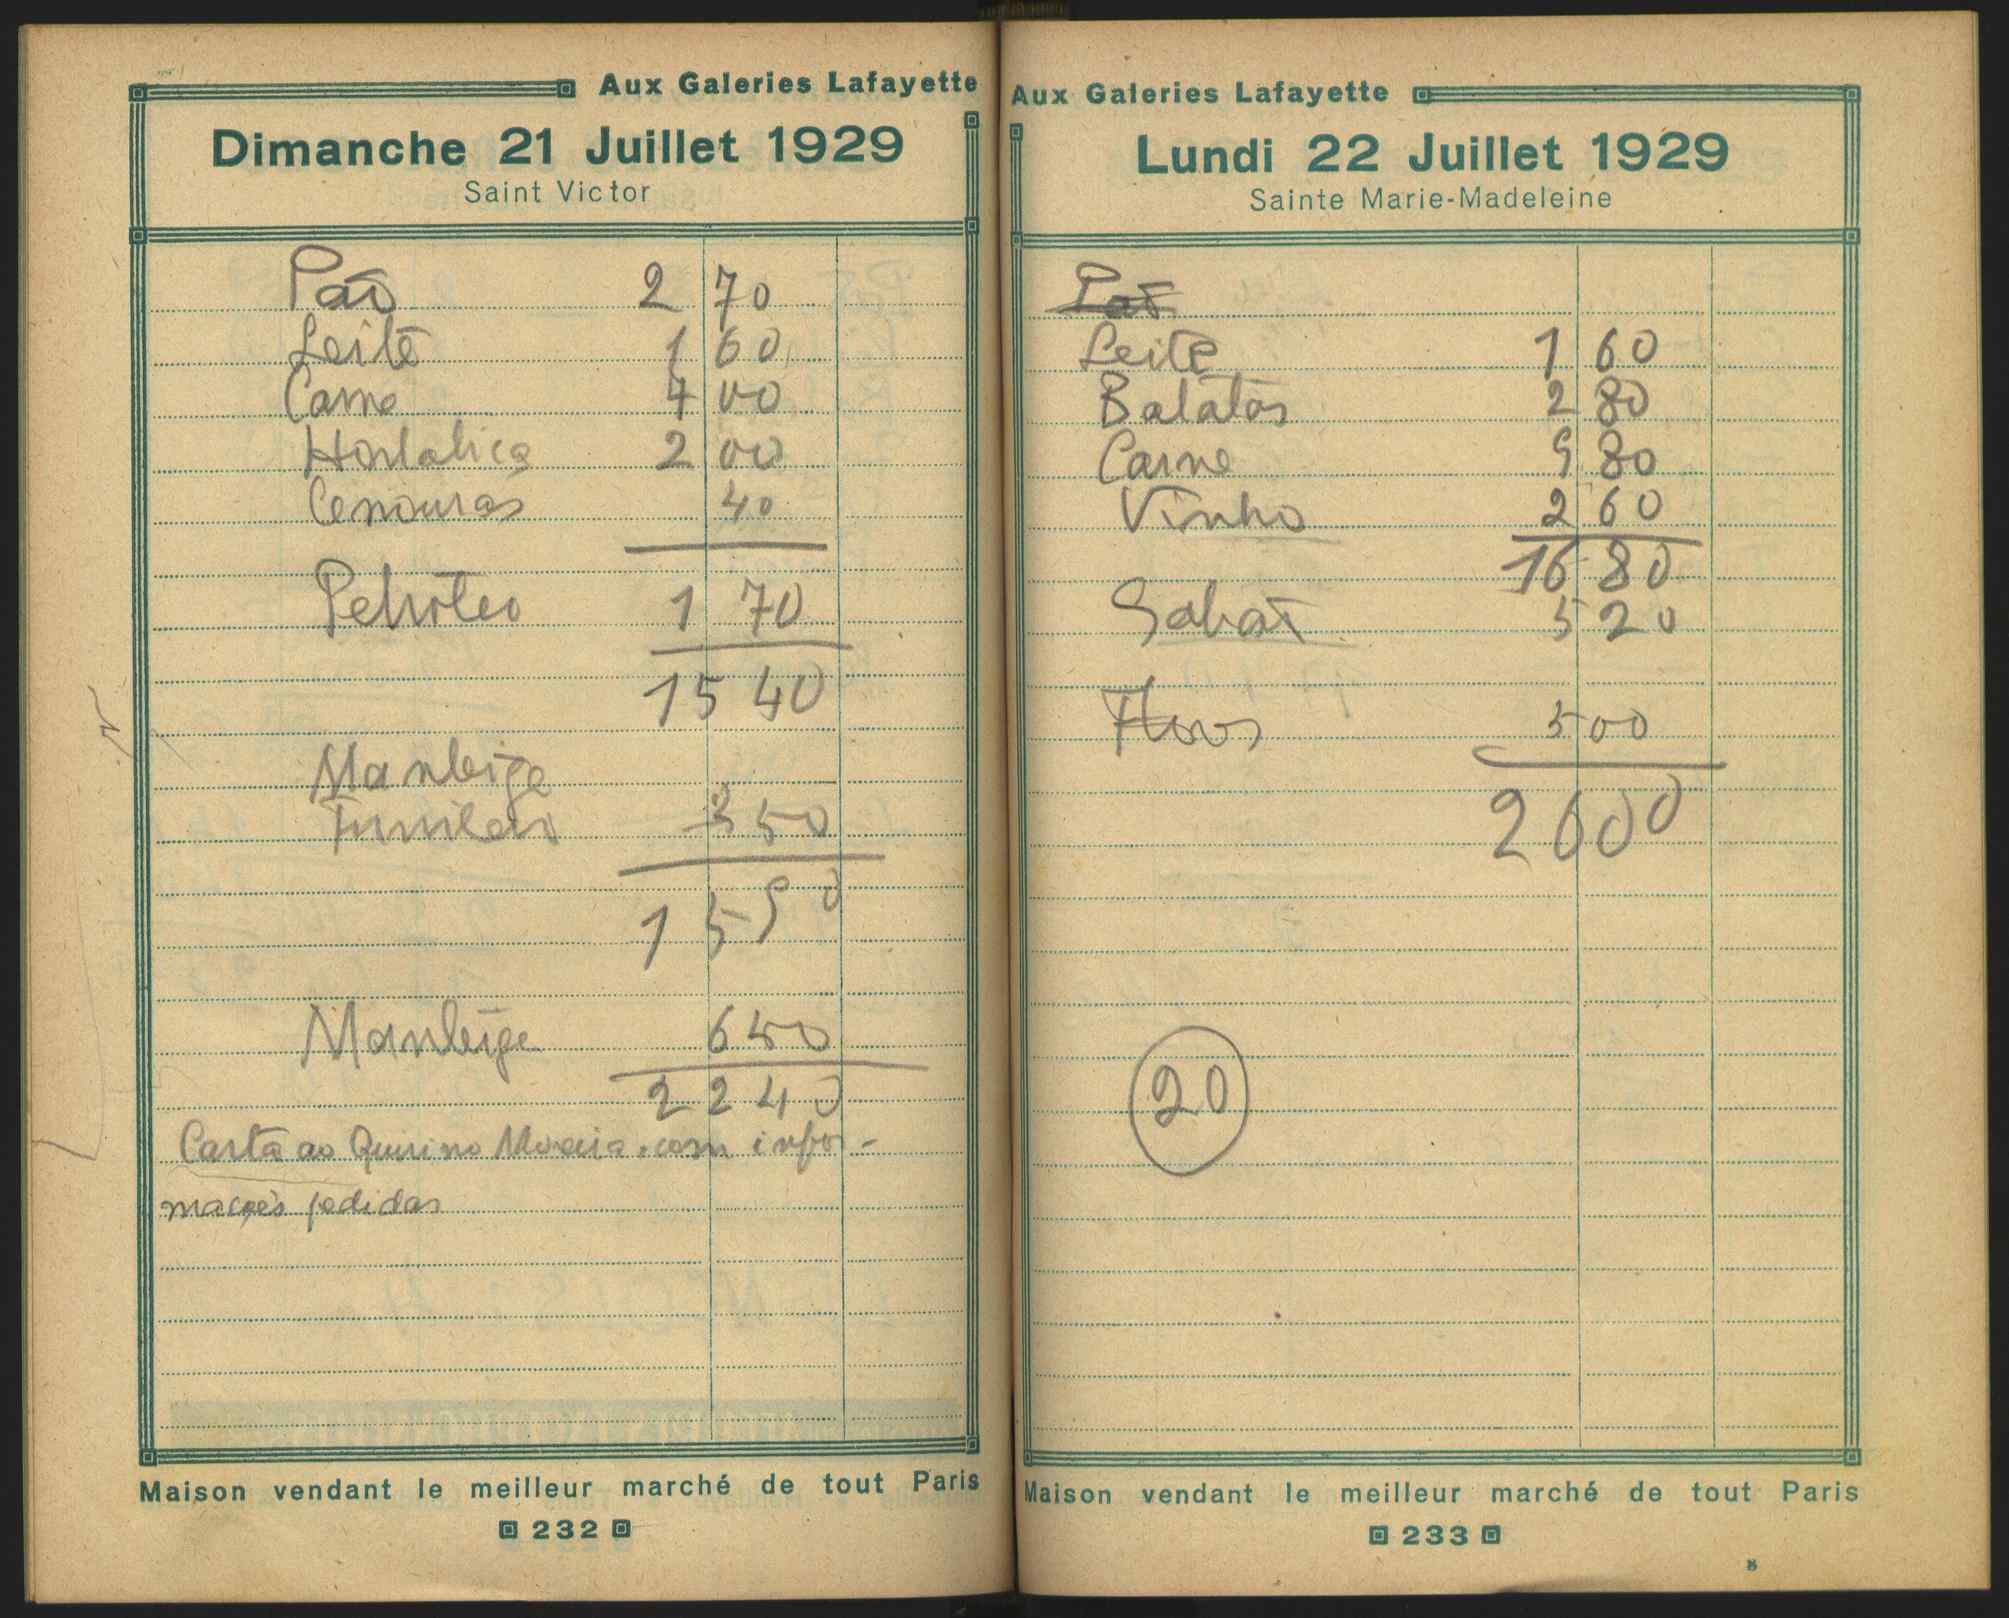 Aux Galeries Lafayette
Dimanche 21 Juillet 1929
Saint Victor
Pão 2 70
Leite 1 60
Carne 7 00
Hortaliça 2 00
Cenouras 40
Petróleo 1 70
15 40
Manteiga
Funileiro 3 50
1 5 9 0
Manteiga 6 50
2 2 4 0
Carta ao Quirino Moreira, com infor-
mações pedidas
Maison vendant le meilleur marché de tout Paris
232
Aux Galeries Lafayette
Lundi 22 Juillet 1929
Sainte Marie-Madeleine
Pão
Leite 1 60
Batatas 2 80
Carne 9 80
Vinho 2 60
16 80
Sabão 5 20
5 00
26 00
20
Maison vendant le meilleur marché de tout Paris
233
8